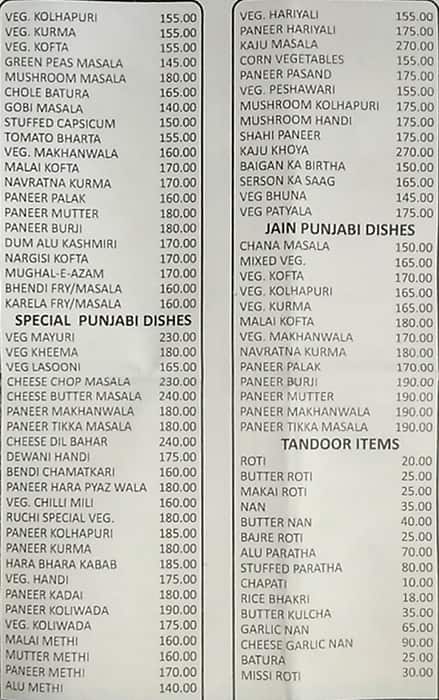 VEG. KOLHAPURI 155.00
VEG. KURMA 155.00
VEG. KOFTA 155.00
GREEN PEAS MASALA 145.00
MUSHROOM MASALA 180.00
CHOLE BATURA 165.00
GOBI MASALA 140.00
STUFFED CAPSICUM 150.00
TOMATO BHARTA 155.00
VEG. MAKHANWALA 160.00
MALAI KOFTA 170.00
NAVRATNA KURMA 170.00
PANEER PALAK 160.00
PANEER MUTTER 180.00
PANEER BURJI 180.00
DUM ALU KASHMIRI 170.00
NARGISI KOFTA 170.00
MUGHAL-E-AZAM 170.00
BHENDI FRY/MASALA 160.00
KARELA FRY/MASALA 160.00
SPECIAL PUNJABI DISHES
VEG MAYURI 230.00
VEG KHEEMA 180.00
VEG LASOONI 165.00
CHEESE CHOP MASALA 230.00
CHEESE BUTTER MASALA 240.00
PANEER MAKHANWALA 180.00
PANEER TIKKA MASALA 180.00
CHEESE DIL BAHAR 240.00
DEWANI HANDI 175.00
BENDI CHAMATKARI 160.00
PANEER HARA PYAZ WALA 180.00
VEG. CHILLI MILI 160.00
RUCHI SPECIAL VEG. 180.00
PANEER KOLHAPURI 185.00
PANEER KURMA 180.00
HARA BHARA KABAB 185.00
VEG. HANDI 175.00
PANEER KADAI 180.00
PANEER KOLIWADA 190.00
VEG. KOLIWADA 175.00
MALAI METHI 160.00
MUTTER METHI 160.00
PANEER METHI 170.00
ALU METHI 140.00
VEG. HARIYALI 155.00
PANEER HARIYALI 175.00
KAJU MASALA 270.00
CORN VEGETABLES 155.00
PANEER PASAND 175.00
VEG. PESHAWARI 155.00
MUSHROOM KOLHAPURI 175.00
MUSHROOM HANDI 175.00
SHAHI PANEER 175.00
KAJU KHOYA 270.00
BAIGAN KA BIRTHA 150.00
SERSON KA SAAG 165.00
VEG BHUNA 145.00
VEG PATYALA 175.00
JAIN PUNJABI DISHES
CHANA MASALA 150.00
MIXED VEG. 165.00
VEG. KOFTA 170.00
VEG. KOLHAPURI 165.00
VEG. KURMA 165.00
MALAI KOFTA 180.00
VEG. MAKHANWALA 170.00
NAVRATNA KURMA 180.00
PANEER PALAK 170.00
PANEER BURJI 190.00
PANEER MUTTER 190.00
PANEER MAKHANWALA 190.00
PANEER TIKKA MASALA 190.00
TANDOOR ITEMS
ROTI 20.00
BUTTER ROTI 25.00
MAKAI ROTI 25.00
NAN 35.00
BUTTER NAN 40.00
BAJRE ROTI 25.00
ALU PARATHA 70.00
STUFFED PARATHA 80.00
CHAPATI 10.00
RICE BHAKRI 18.00
BUTTER KULCHA 35.00
GARLIC NAN 65.00
CHEESE GARLIC NAN 90.00
BATURA 25.00
MISSI ROTI 30.00